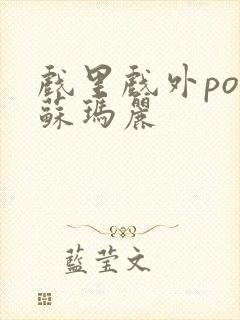 戲里戲外po
蘇瑪麗
藍莹文